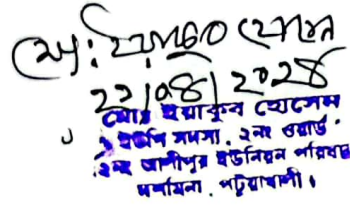 মোঃ ইয়াকুব হোসেন
২২/০৪/২০২৪
মোঃ ইয়াকুব হোসেন
ইউপি সদস্য, ২নং ওয়ার্ড
২নং আলীপুর ইউনিয়ন পরিষদ
দশমিনা, পটুয়াখালী।